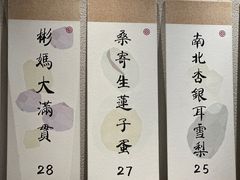 南北杏銀耳雪梨
25
桑寄生蓮子蛋
27
彬媽大滿貫
28